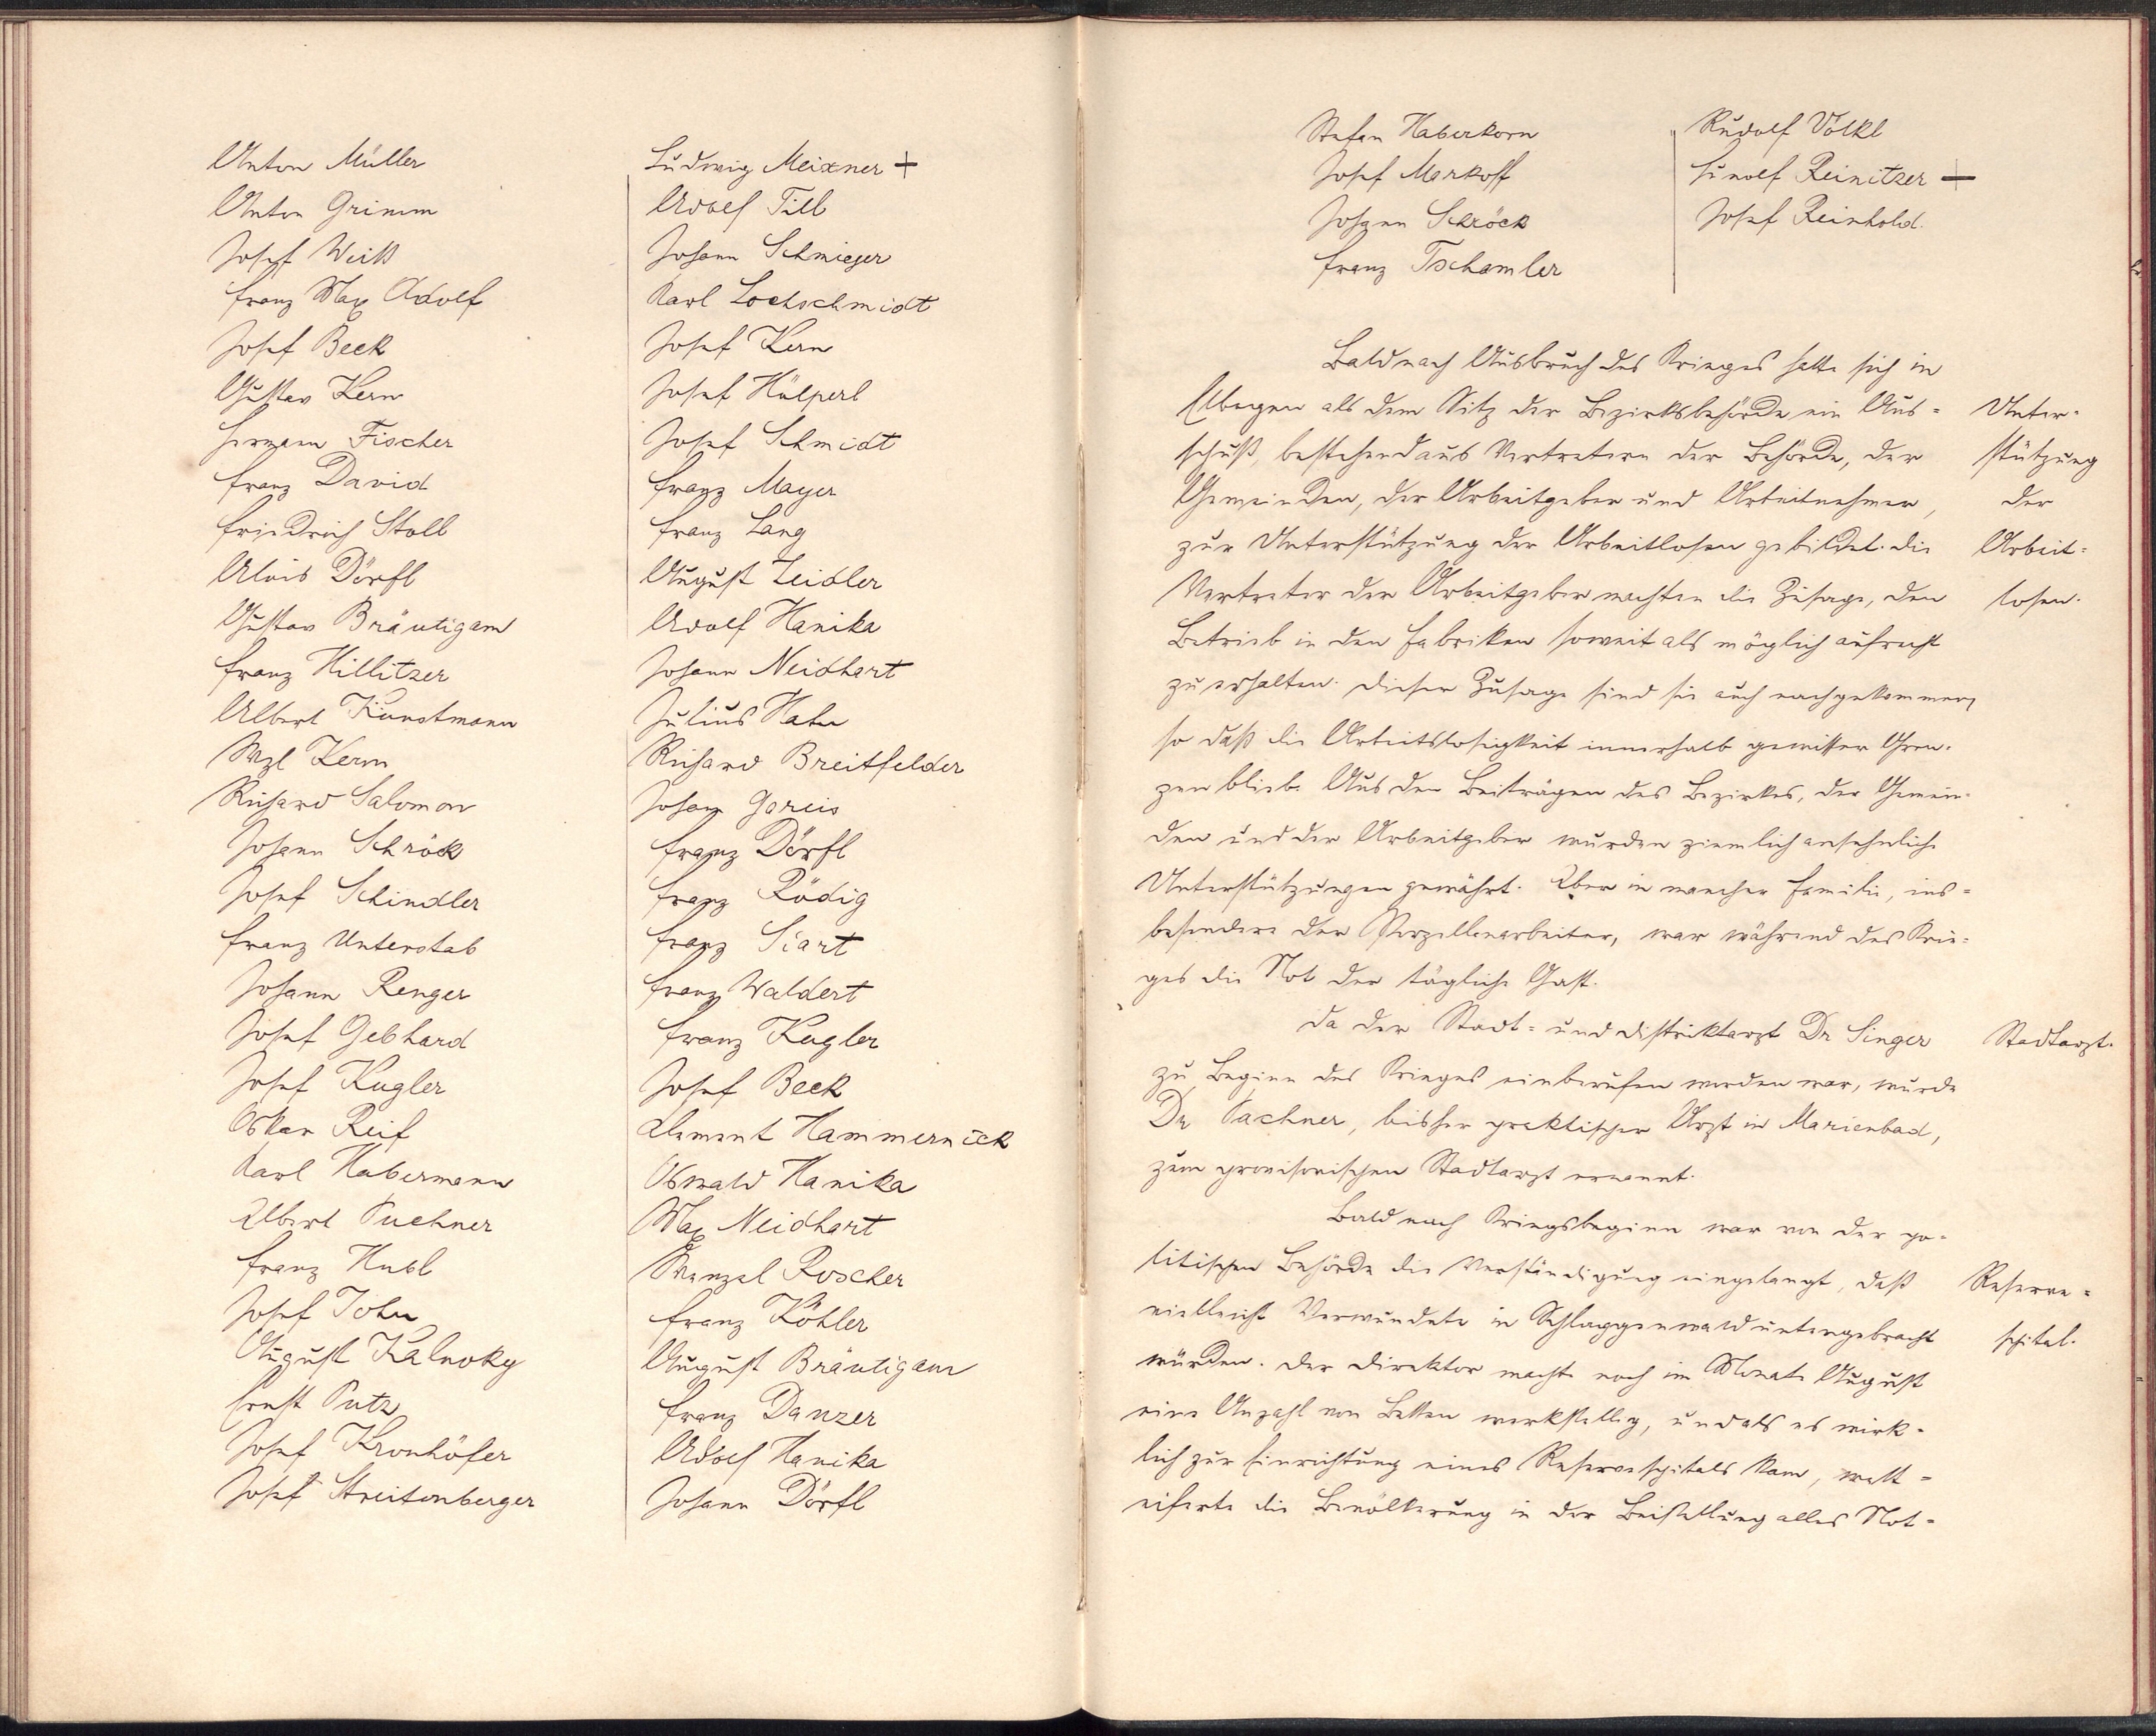 Anton Müller
Anton Grimm
Josef Weiß
Franz Max Adolf
Josef Beck
Gustav Kern
Hermann Fischer
Franz David
Friedrich Stoll
Alois Dörfl
Gustav Bräutigam
Franz Hillitzer
Albert Kunstmann
Wzl Kern
Richard Salomon
Johann Schröck
Josef Schindler
Franz Unterstab
Johann Renger
Josef Gebhard
Josef Kugler
Oskar Reif
Karl Habermann
Albert Puchner
Franz Hubl
Josef John
August Kalnoky
Ernst Putz
Josef Kronhöfer
Josef Streitenberger
Ludwig Meixner +
Adolf Till
Johann Schmieger
Karl Lochschmidt
Josef Kern
Josef Hülperl
Josef Schmidt
Franz Mayer
Franz Lang
August Zeidler
Adolf Hanika
Johann Neidhart
Julius Hahn
Richard Breitfelder
Johann Gareis
Franz Dörfl
Franz Rödig
Franz Siart
Franz Waldert
Franz Kugler
Josef Beck
Klement Hammernick
Oswald Hanika
Max Neidhart
Wenzel Roscher
Franz Köhler
August Bräutigam
Franz Danzer
Adolf Hanika
Johann Dörfl
Stefan Haberkorn
Josef Markoff
Johann Schröck
Franz Tschamler
Rudolf Völkl
Reinitzer +
Josef Reinhold.
Bald nach Ausbruch des Krieges hatte sich in
Elbogen als dem Sitz der Bezirksbehörde ein Aus-
schuß, bestehend aus Vertretern der Behörde, der
Gemeinden, der Arbeitgeber und Arbeitnehmer,
zur Unterstützung der Arbeitlosen gebildet. Die
Vertreter der Arbeitgeber machten die Zusage, den
Betrieb in den Fabriken soweit als möglich aufrecht
zu erhalten. Dieser Zusage sind sie auch nachgekommen,
so daß die Arbeitslosigkeit innerhalb gewisser Gren-
zen blieb. Aus den Beiträgen des Bezirkes, der Gemein-
den und der Arbeitgeber wurden ziemlich ansehnliche
Unterstützungen gewährt. Aber in mancher Familie, ins-
besondere der Porzellanarbeiter, war während des Krie-
ges die Not der tägliche Gast.
Unter-
stützung
der
Arbeit-
losen.
Da der Stadt- und Distriktarzt Dr Singer
zu Beginn des Krieges einberufen worden war, wurde
Dr Pachner, bisher praktischer Arzt in Marienbad,
zum provisorischen Stadtarzt ernannt.
Stadtarzt.
Bald nach Kriegsbeginn war von der po-
litischen Behörde die Verständigung eingelangt, daß
vielleicht Verwundete in Schlaggenwald untergebracht
würden. Der Direktor machte noch im Monate August
eine Anzahl von Betten werkstellig, und als es wirk-
lich zur Einrichtung eines Reservespitals kam, wett-
eiferte die Bevölkerung in der Beistellung alles Not-
Reserve-
spital.